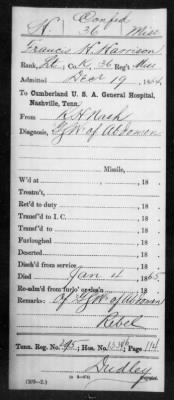 Confed
H. 36 Miss
Francis H. Harrison
Rank, Lt. Co. K, 36 Reg't Miss
Admitted Decr 19, 1864
To Cumberland U. S. A. General Hospital,
Nashville, Tenn.
From R H Nash
Diagnosis, GSW of Abdomen
Missile,
W'd at , 18
Treatm't,
Ret'd to duty , 18
Transf'd to I. C. , 18
Transf'd , 18
Furloughed , 18
Deserted , 18
Disch'd from service , 18
Died Jan 4, 1865
Re-adm'd from furlo' or des'n , 18
Remarks: Of GSW of Abdomen
Rebel
Tenn. Reg. No. 295; Hos. No. ; Page 114
Dudley